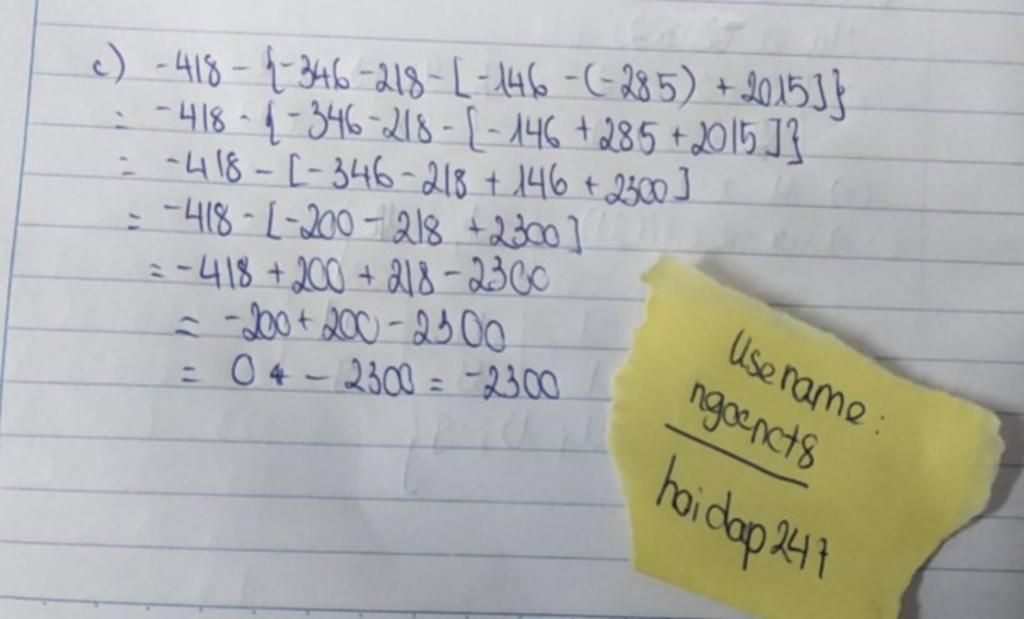 c) -418 - {-346 - 218 - [-146 - (-285) + 2015]}
= -418 - {-346 - 218 - [-146 + 285 + 2015]}
= -418 - [-346 - 218 + 146 + 2300]
= -418 - [-200 - 218 + 2300]
= -418 + 200 + 218 - 2300
= -200 + 200 - 2300
= 0 + - 2300 = -2300
Username:
ngocnct8
hoidap247